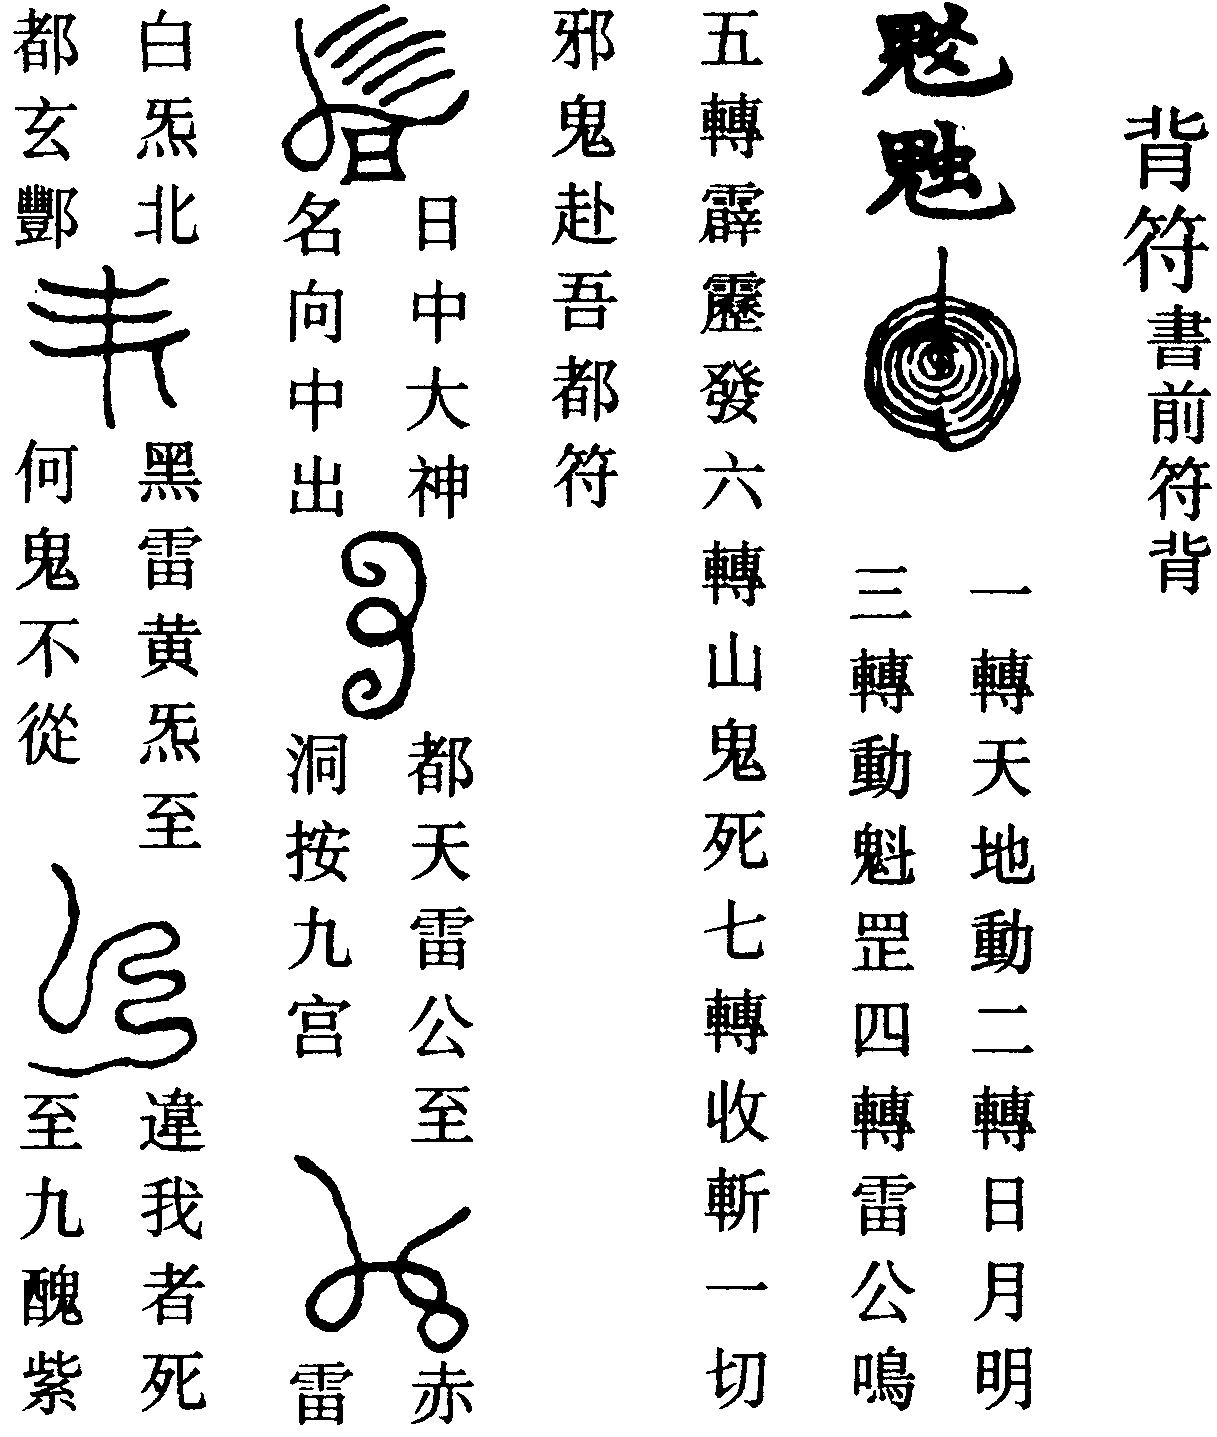 背符書前符背
一轉天地動二轉日月明
三轉動魁罡四轉雷公鳴
五轉霹靂發六轉山鬼死七轉收斬一切
邪鬼赴吾都符
日中大神
名向中出
都天雷公至
洞按九宫
赤
雷
白炁北
都玄酆
黑雷黄炁至
何鬼不從
違我者死
至九醜紫